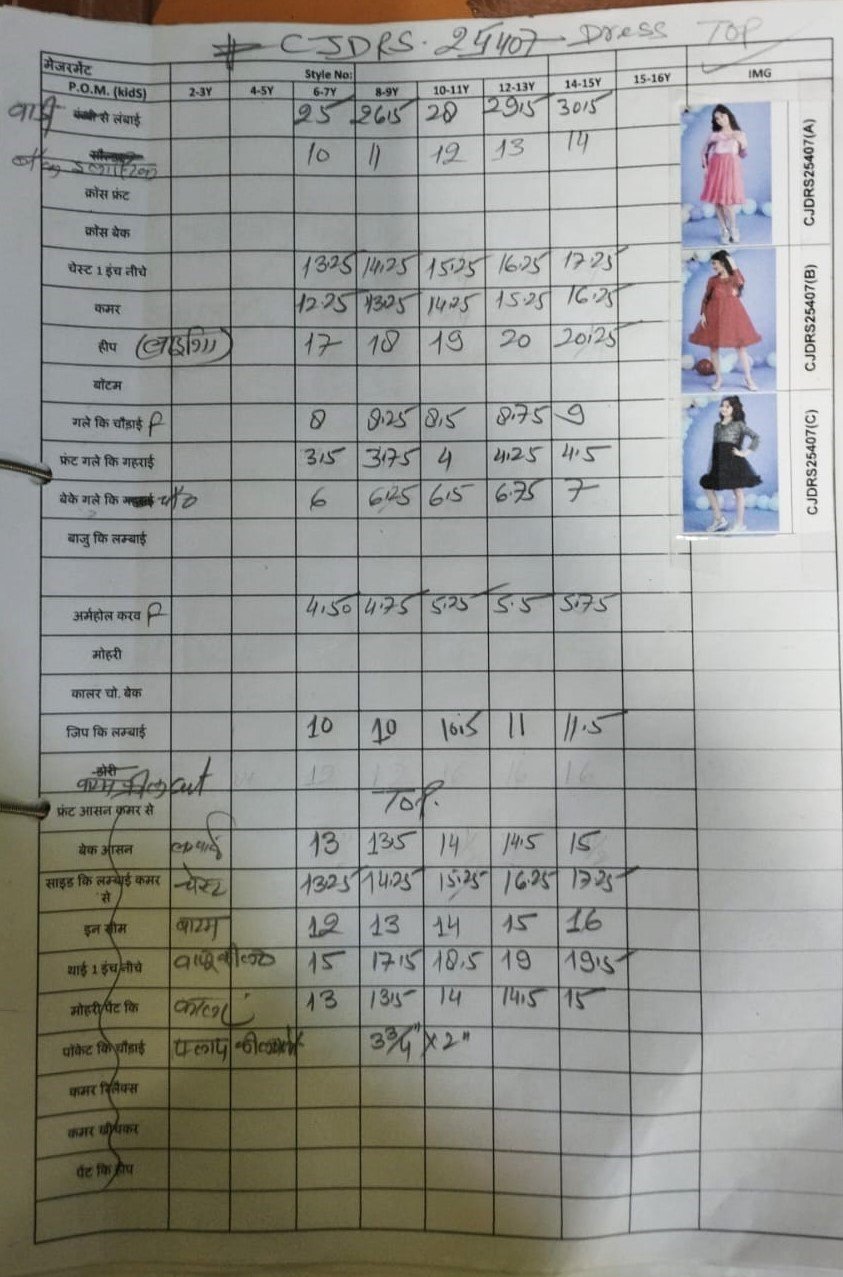 # CJDRS. 25407 Dress TOP
मेजरमेंट Style No: IMG
P.O.M. (kidS) 2-3Y 4-5Y 6-7Y 8-9Y 10-11Y 12-13Y 14-15Y 15-16Y
से लंबाई 25 26.5 28 29.5 30.5
10 11 12 13 14
क्रोस फ्रंट
क्रोस बेक
चेस्ट 1 इंच नीचे 13.25 14.25 15.25 16.25 17.25
कमर 12.25 13.25 14.25 15.25 16.25
हीप 17 18 19 20 20.25
बॉटम
गले कि चौड़ाई F 8 8.25 8.5 8.75 9
फ्रंट गले कि गहराई 3.5 3.75 4 4.25 4.5
बेके गले कि 6 6.25 6.5 6.75 7
बाजु कि लम्बाई
अर्महोल करव F 4.50 4.75 5.25 5.5 5.75
मोहरी
कालर चो. बेक
जिप कि लम्बाई 10 10 10.5 11 11.5
डोरी
cut
TOP.
फ्रंट आसन कमर से
बेक आसन 13 13.5 14 14.5 15
साइड कि लम्बाई कमर से चेस्ट 13.25 14.25 15.25 16.25 17.25
इन सीम 12 13 14 15 16
थाई 1 इंच नीचे 15 17.5 18.5 19 19.5
मोहरी पेंट कि 13 13.5 14 14.5 15
पॉकेट कि चौड़ाई 3 3/4" X 2"
कमर रिलैक्स
कमर खीचकर
पेंट कि हीप
CJDRS25407(A)
CJDRS25407(B)
CJDRS25407(C)